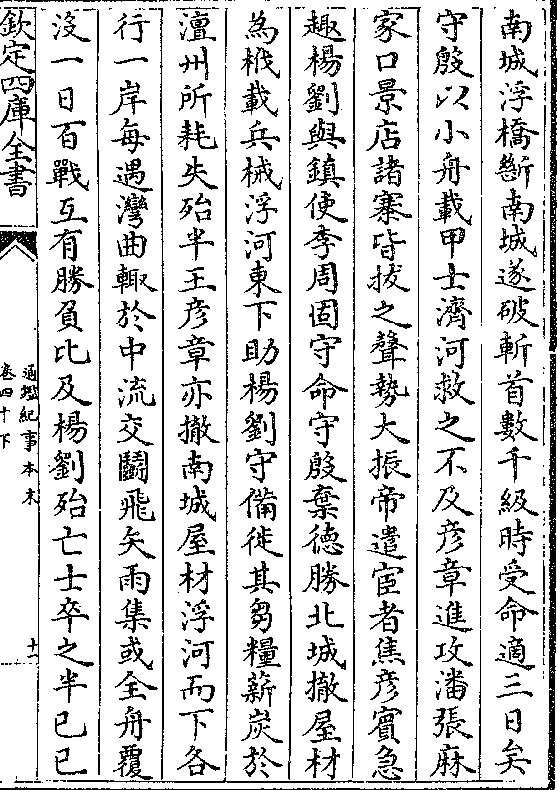 南城浮橋斷南城遂破斬首數千級時受命適三日矣
守殷以小舟載甲士濟河救之不及彦章進攻潘張麻
家口景店諸寨皆拔之聲勢大振帝遣宦者焦彦賓急
趣楊劉與鎮使李周固守命守殷棄徳勝北城撤屋材
為栰載兵械浮河東下助楊劉守備徙其芻糧薪炭於
澶州所耗失殆半王彦章亦撤南城屋材浮河而下各
行一岸每遇灣曲輙於中流交鬭飛矢雨集或全舟覆
沒一日百戰互有勝負比及楊劉殆亡士卒之半已已
欽定四庫全書
通鑑紀事本末
卷四十下
十一